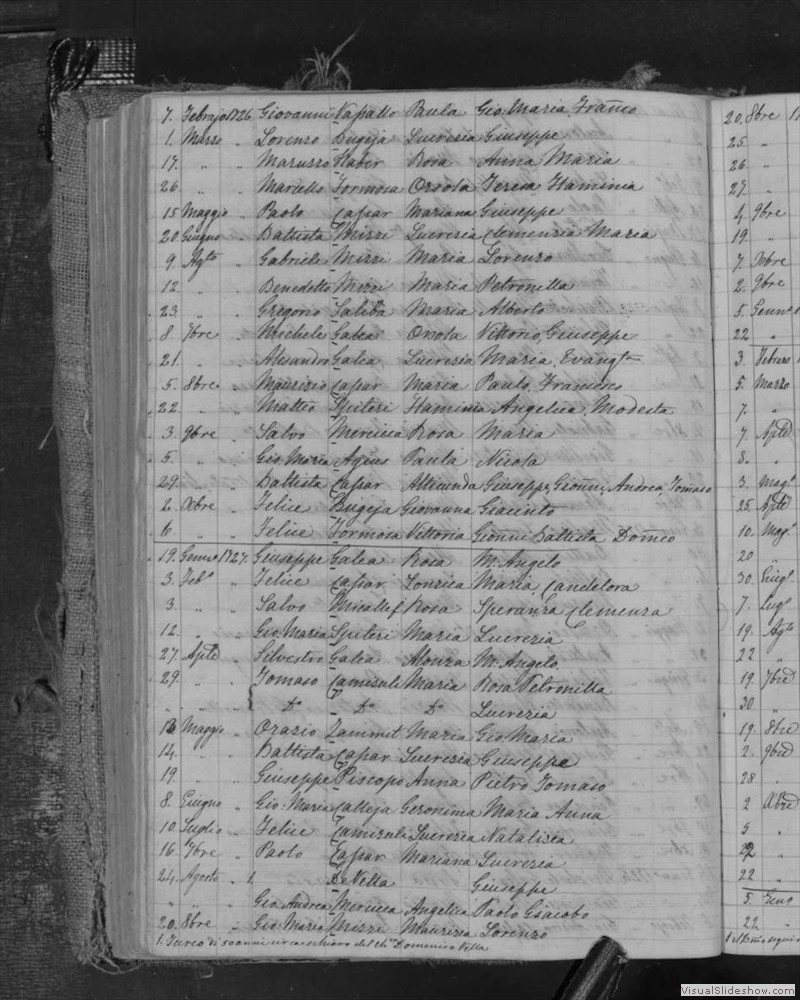 7. Febrajo 1726. Giovanni Vassallo Paula Gio. Maria, Franco
1. Marzo " Lorenzo Bugeja Lucrezia Giuseppe
17. " " Maruzzo Xaber Rosa Anna Maria
26. " " Marcello Formosa Orsola Teresa Flaminia
15 Maggio " Paolo Caspar Mariana Giuseppe
20 Giugno " Battista Mizzi Lucrezia Clemenzia Maria
9 Agto " Gabriele Mizzi Maria Lorenzo
12. " " Benedetto Mizzi Maria Petronilla
23. " " Gregorio Saliba Maria Alberto
8 7bre " Michele Galea Orsola Vittorio, Giuseppe
21. " " Alesandro Galea Lucrezia Maria, Evangta
5. 8bre " Maurizio Caspar Maria Paulo, Francesco
22. " " Matteo Spiteri Flaminia Angelica, Modesta
3. 9bre " Salvo Mercieca Rosa Maria
5. " " Gio. Maria Agius Paula Nicola
29. " " Battista Caspar Giuseppe, Gionni, Andrea, Tomaso
2. Xbre " Felice Bugeja Giovanna Giacinto
6. " " Felice Formosa Vittoria Gionni Battista Domco
19. Genno 1727. Giuseppe Galea Rosa M. Angelo
3. Febo " Felice Caspar Maria, Candelora
3. " " Salvo Micallef Rosa Speranza Clemenza
12. " " Gio. Maria Spiteri Maria Lucrezia
27. Aple " Silvestro Galea Alonza M. Angelo
29. " " Tomaso Camisuli Maria Rosa Petronilla
" " " Do Do Do Lucrezia
13 Maggio " Orazio Zammit Maria Gio Maria
14. " " Battista Caspar Lucrezia Giuseppe
19 " " Giuseppe Piscopo Anna Pietro Tomaso
8. Giugno " Gio. Maria Calleja Geronima Maria Anna
10. Luglio " Felice Camisuli Lucrezia Natalizia
16 7bre " Paolo Caspar Mariana Lucrezia
24. Agosto " 1. De Vella Giuseppe
" " " Gio. Andrea Mercieca Angelica Paolo Giacobo
20. 8bre " Gio. Maria Mizzi Maurizia Lorenzo
1. Turco di 50 anni circa schiavo del Domenico Vella
20. 8bre 1
25 "
26 "
27 "
4 9bre
19 "
7. Xbre
2. 9bre
5. Genno
22 "
3. Febraro
5. Marzo
7. "
7 Aple
8. "
3. Mago
25. Aple
10. Mago
20 "
30. Giugo
7. Lugo
19. Agto
22 "
19. 7bre
30 "
19 8bre
2. 9bre
28 "
2 Xbre
5 "
22 "
22 "
5. Geno
22 "
VisualSlideshow.com